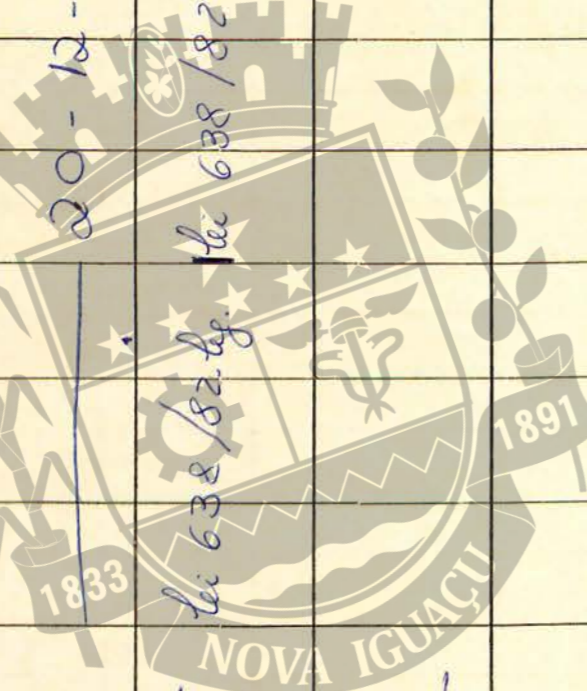 20-12-
lei 638/82. lig. lei 638/82
1833
1891
NOVA IGUAÇU